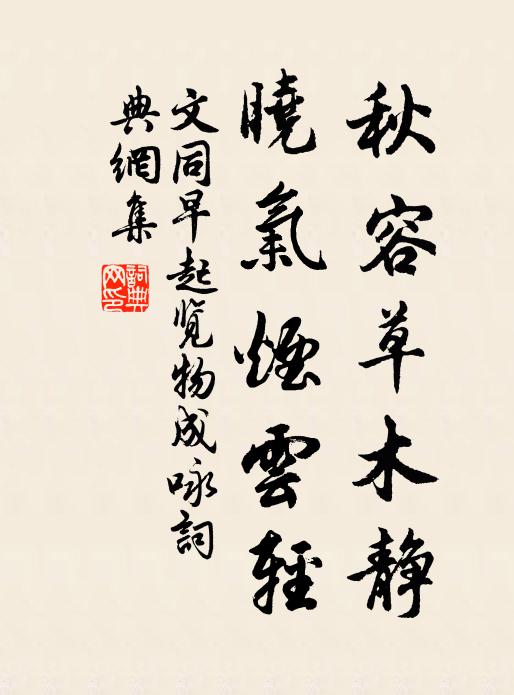 秋容草木静
曉氣煙雲輕
文同早起覽物成咏詞
典網集
詞典
网印